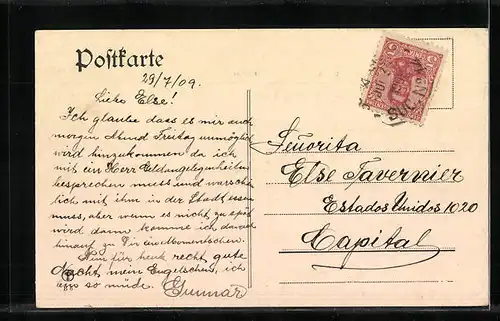 Postkarte
29/7/09.
Liebe Else!
Ich glaube dass es mir auch
morgen Abend Freitag unmöglich
wird hinzukommen da ich
mit ein Herr Geldangelegenheiten
besprechen muss und warschein
lich mit ihm in der Stadt essen
muss, aber wenn es nicht zu spät
wird dann komme ich danach
hinauf zu Dir ein Momentschen.
Nun für heut recht gute
Nacht mein Engelschen, ich
bin so müde. Gunnar
Señorita
Else Tavernier
Estados Unidos 1020
Capital